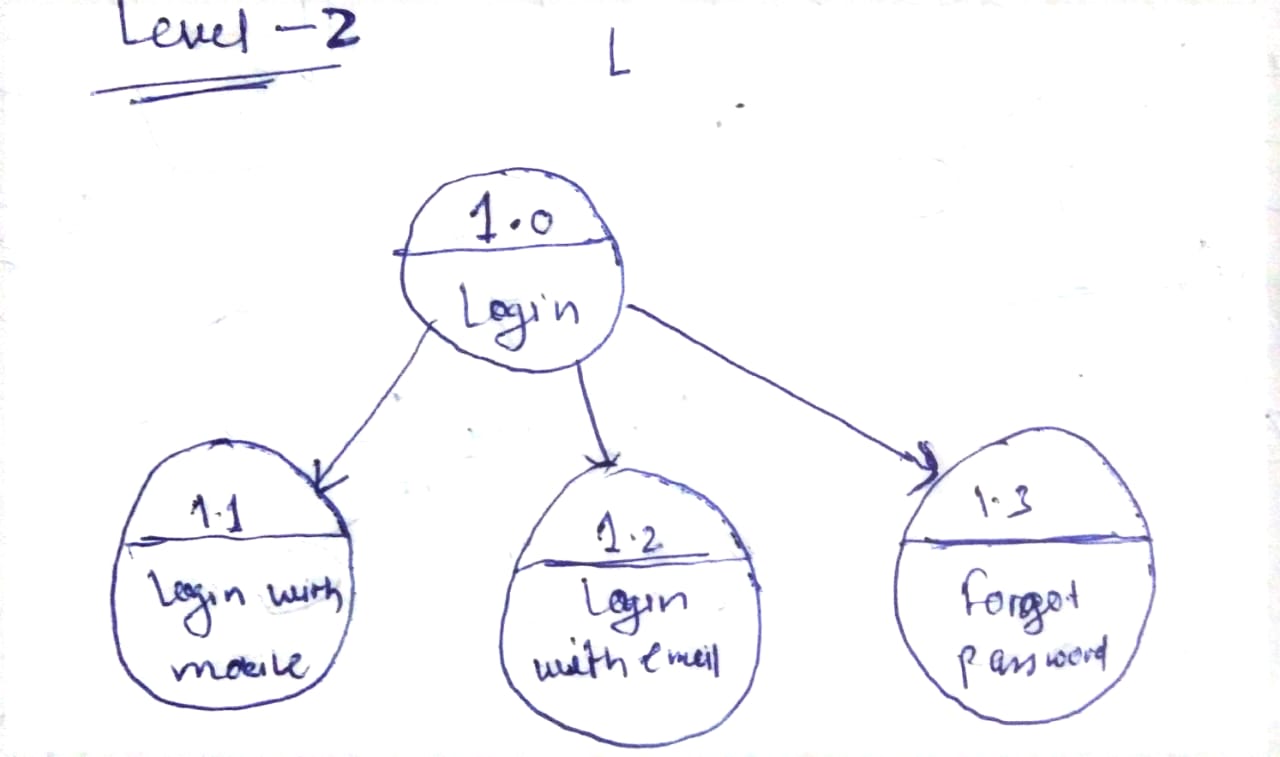 Level - 2
L
1.0
Login
1.1
Login with
mobile
1.2
Login
with email
1.3
Forgot
password